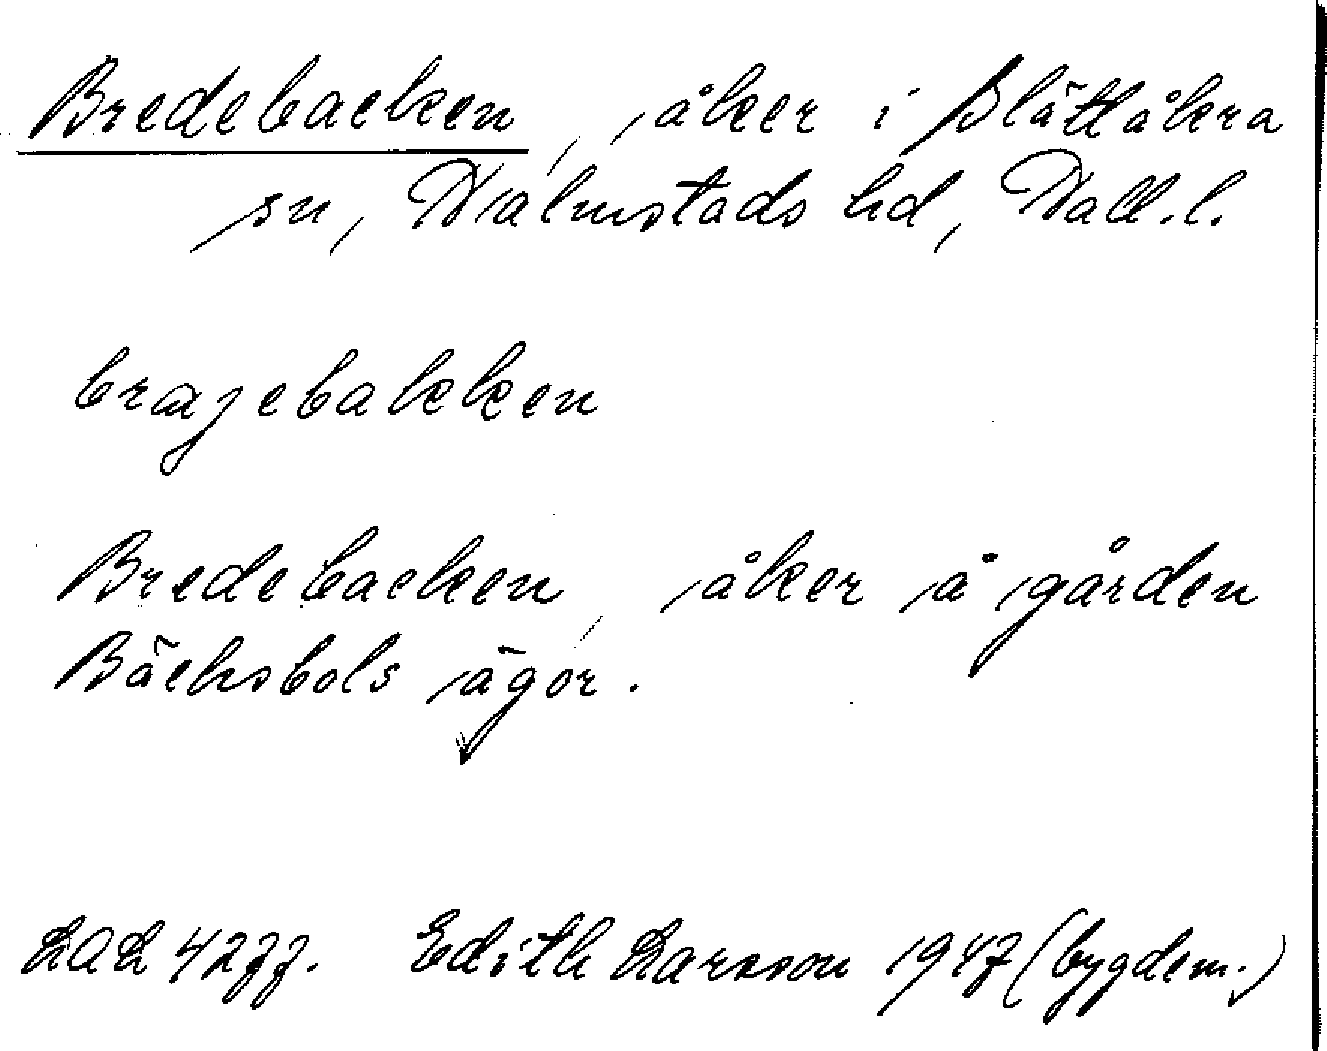 Bredebacken, åker i Slättåkra
sn, Halmstads hd, Hall.l.
bræjebakken
Bredebacken, åker å gården
Bäcksbols ägor.
LAL 4277. Edith Larsson 1947 (bygdem.)